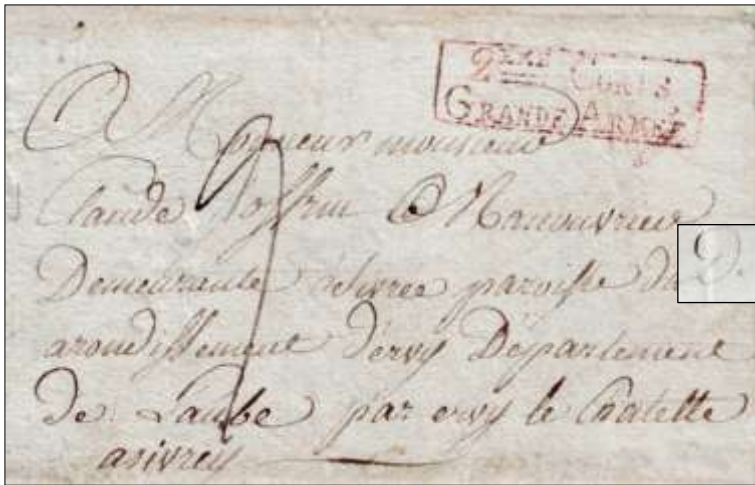 2EME CORPS
GRANDE ARMÉE
A Monsieur monsieur
Claude Manouvrier
Demeurante paroisse du
D.
arondissement d'ervy Département
de Laube par ervy le Chatelle